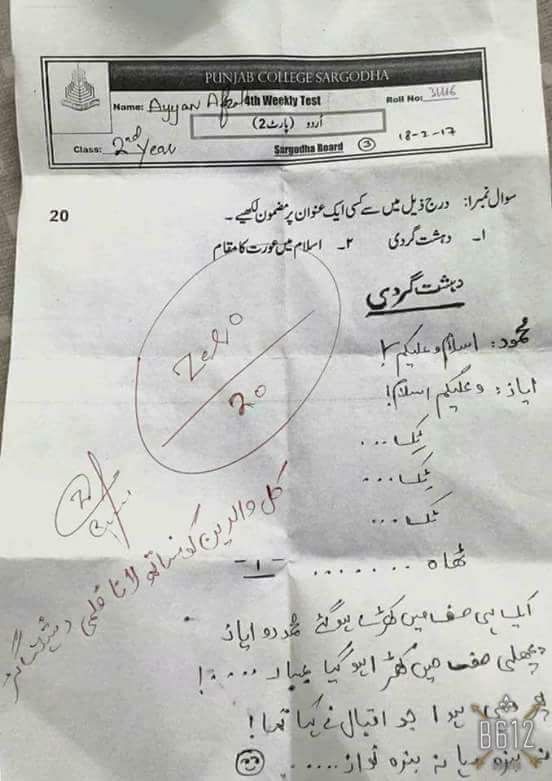 PUNJAB COLLEGE SARGODHA
Name: Ayyan Afzal 4th Weekly Test Roll No: 3446
اُردو (پارٹ 2)
Class: 2nd Year Sargodha Board 3 18-2-17
سوال نمبر1: درج ذیل میں سے کسی ایک عنوان پر مضمون لکھیے۔ 20
۱۔ دہشت گردی ۲۔ اسلام میں عورت کا مقام
دہشت گردی
محمود: اسلام و علیکم!
ایاز: وعلیکم اسلام!
Zero
20
ٹک ...
ٹک ...
ٹک ...
ٹھاہ ........ - ا -
کل والدین کو ساتھ لانا فلمی دہشتگر
ایک ہی صف میں کھڑے ہو گئے محمود و ایاز
پچھلی صف میں کھڑا ہو گیا ....!
ہوا جو اقبال نے کہا تھا!
نہ بندہ رہا نہ بندہ نواز.....
B612